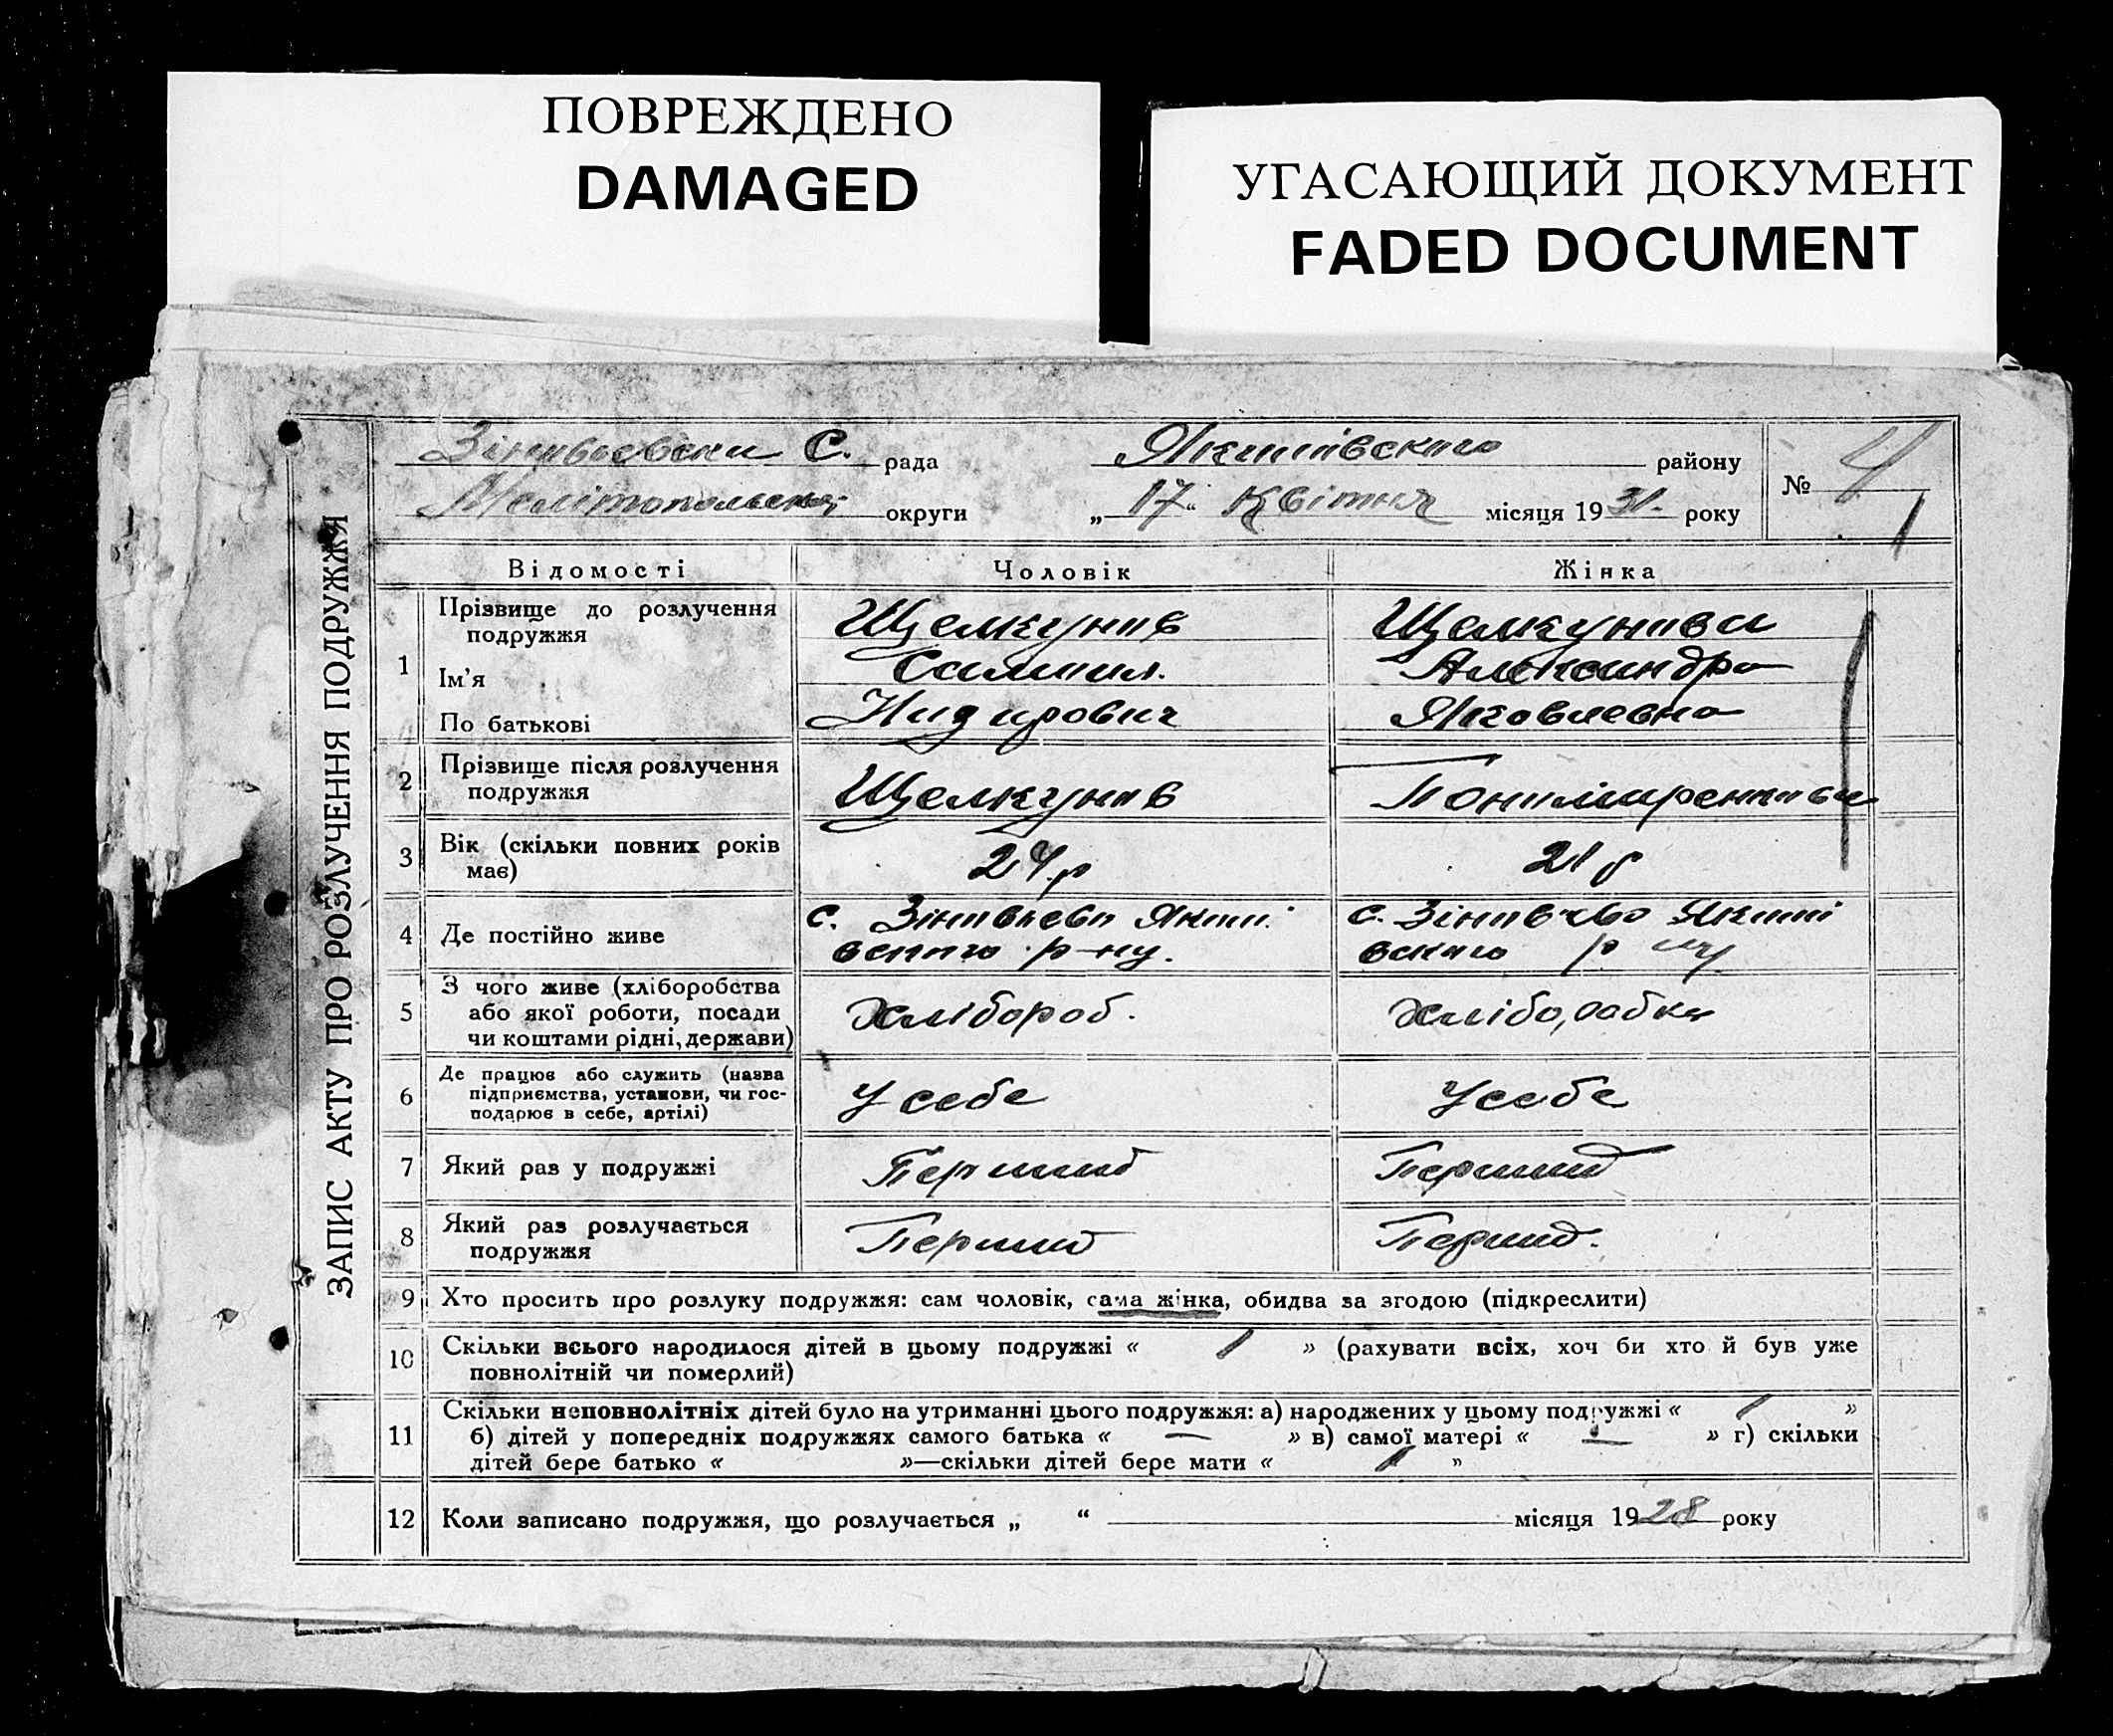 ПОВРЕЖДЕНО
DAMAGED
УГАСАЮЩИЙ ДОКУМЕНТ
FADED DOCUMENT
ЗАПИС АКТУ ПРО РОЗЛУЧЕННЯ ПОДРУЖЖЯ
С. рада района Якимівського району
округи „17“ Квітня місяця 1931 року
№ 4
Відомості Чоловік Жінка
1 Прізвище до розлучення подружжя Щелкунов Щелкунова
Ім'я Александра
По батькові Яковлевна
2 Прізвище після розлучення подружжя Щелкунов
3 Вік (скільки повних років має) 24 р 21 р
4 Де постійно живе с. Якимі с. Якимі
вского р-ну. вского р ну
5 З чого живе (хліборобства або якої роботи, посади чи коштами рідні, держави) хлібороб. хліборобка
6 Де працює або служить (назва підприємства, установи, чи господарює в себе, артілі) У себе У себе
7 Який раз у подружжі Перший Перший
8 Який раз розлучається подружжя Перший Перший.
9 Хто просить про розлуку подружжя: сам чоловік, сама жінка, обидва за згодою (підкреслити)
10 Скільки всього народилося дітей в цьому подружжі « 1 » (рахувати всіх, хоч би хто й був уже
повнолітній чи померлий)
11 Скільки неповнолітніх дітей було на утриманні цього подружжя: а) народжених у цьому подружжі « 1 »
б) дітей у попередніх подружжях самого батька « — » в) самої матері « — » г) скільки
дітей бере батько « »—скільки дітей бере мати « 1 »
12 Коли записано подружжя, що розлучається „ “ місяця 1928 року